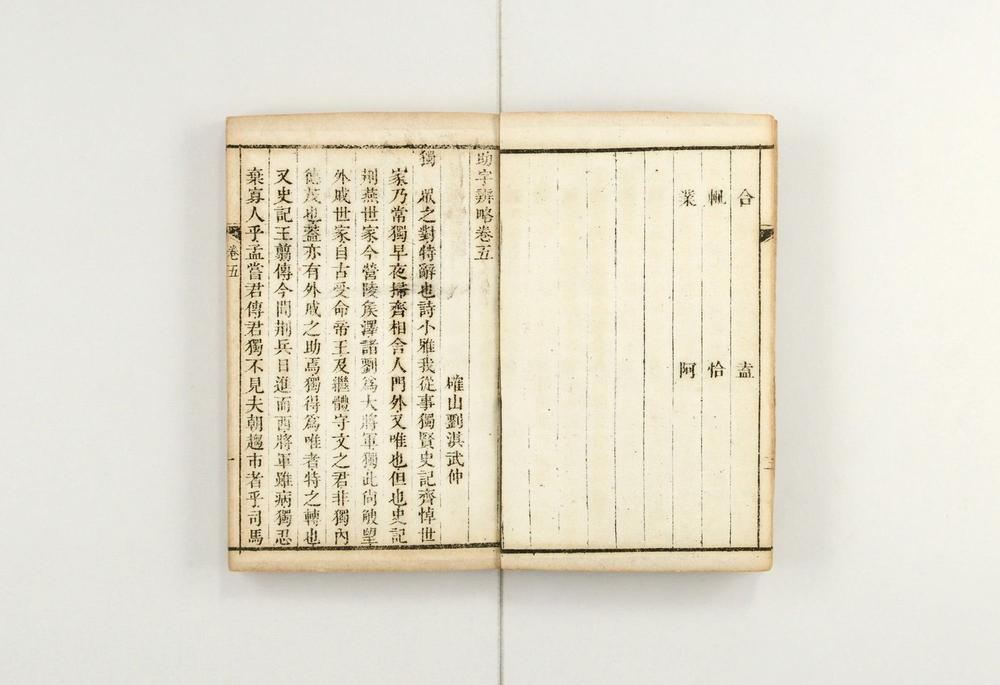 合 盍
輒 恰
業 阿
助字辨略卷五
確山劉淇武仲
獨 衆之對特辭也詩小雅我從事獨賢史記齊悼世
家乃常獨早夜掃齊相舍人門外又唯也但也史記
荆燕世家今營陵矦澤諸劉爲大將軍獨此尙觖望
外戚世家自古受命帝王及繼體守文之君非獨內
德茂也葢亦有外戚之助焉獨得爲唯者特之轉也
又史記王翦傳今聞荆兵日進而西將軍雖病獨忍
棄寡人乎孟嘗君傳君獨不見夫朝趨市者乎司馬
卷五
一